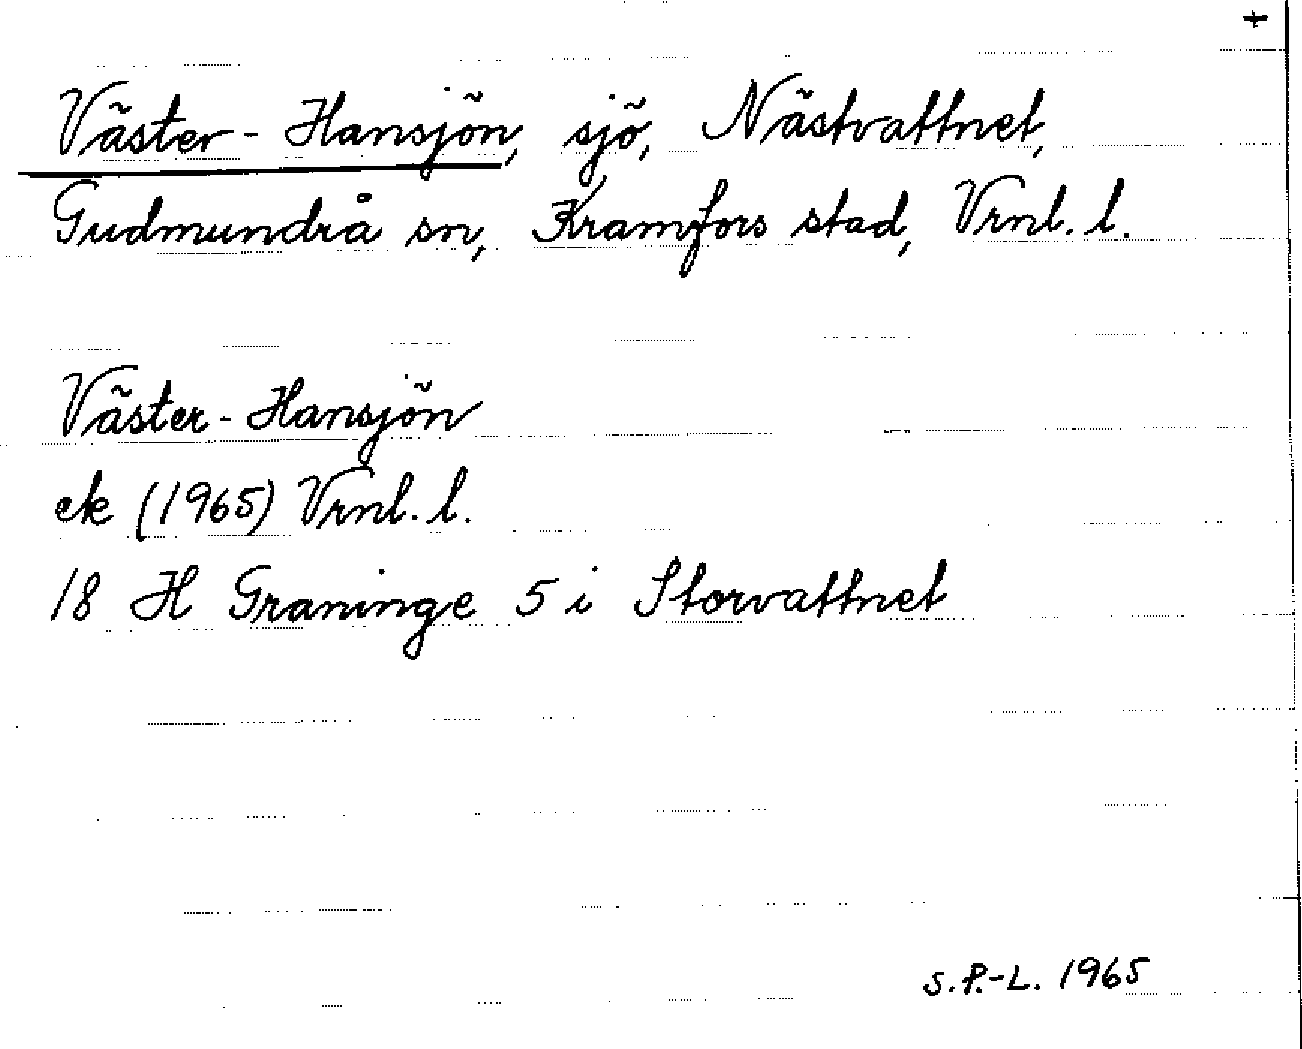 +
Väster-Hansjön, sjö, Nästvattnet,
Gudmundrå sn, Kramfors stad, Vrnl. l.
Väster-Hansjön
ek (1965) Vrnl. l.
18 H Graninge 5 i Storvattnet
S.P.-L. 1965